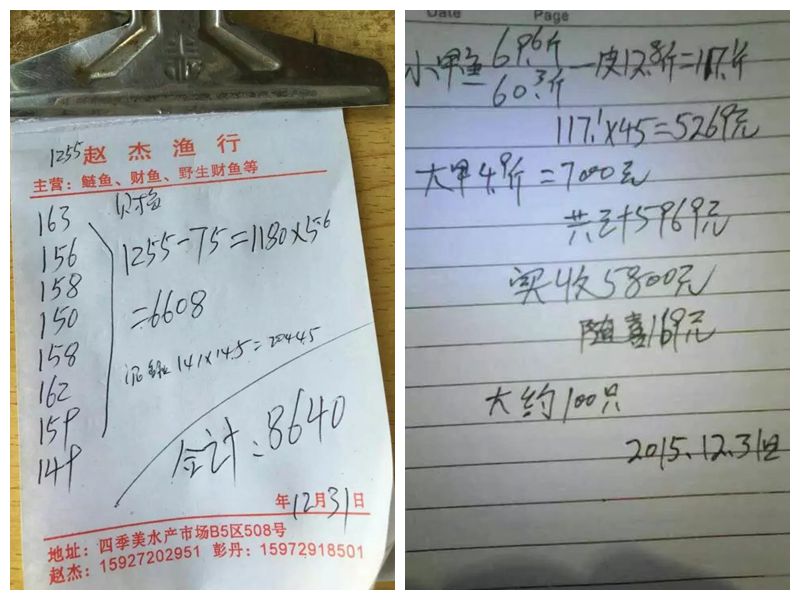 1255
赵杰渔行
主营：鲢鱼、财鱼、野生财鱼等
163
156
158
150
158
162
159
149
财鱼
1255-75=1180×5.6
=6608
141×14.5=2044.5
合计：8640
年12月31日
地址：四季美水产市场B5区508号
赵杰：15927202951 彭丹：15972918501
Date Page
小甲鱼 69.6斤
60.3斤
一皮12.8斤=117.1斤
117.1×45=5269元
大甲4.9斤=700元
共计5969元
实收5800元
随喜169元
大约100只
2015.12.31日